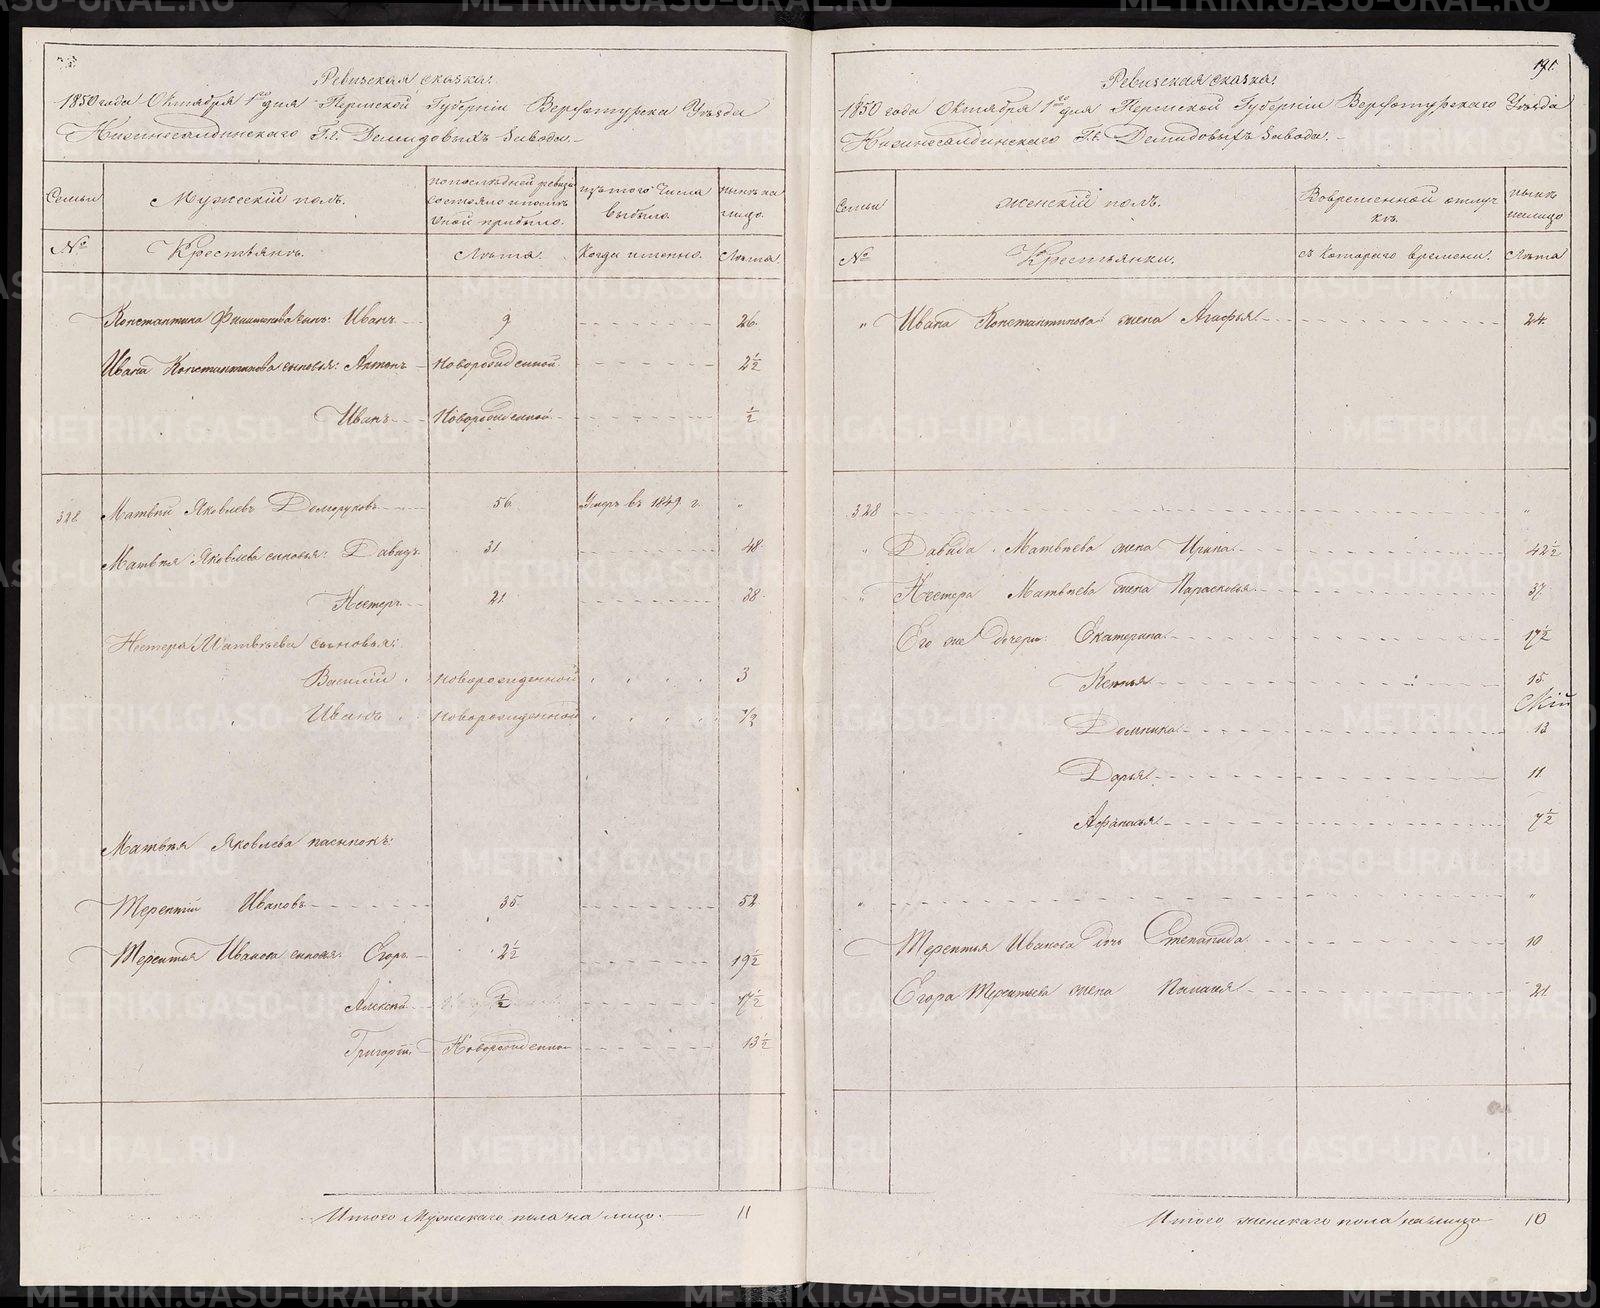 Ревизская сказка.
1850 года Октября 1го дня Пермской Губерніи Верхотурска Уѣзда
Нижнесалдинскаго Г.г. Демидовыхъ Завода.
Семьи
Мужескій полъ.
по последней ревизіи состояло и после оной прибыло.
изъ того числа выбыло
нынѣ на лицо.
№
Крестьянъ.
Лѣта.
Когда именно.
Лѣта
Константина Филипова сынъ: Иванъ 9 26.
Ивана Константинова сыновья: Антонъ Новорожденной 2½
Иванъ Новорожденной ½
328 Матвей Яковлевъ Долоруковъ 56. Умеръ въ 1849 г. "
Матвея Яковлева сыновья: Давидъ 31 48
Нестеръ 21. 38
Нестера Матвѣева сыновья:
Василій Новорожденной 3
Иванъ Новорожденной ½
Матвея Яковлева пасынокъ:
Терентій Ивановъ 35. 52
Терентья Иванова сыновья: Егоръ 2½ 19½
Алексей ½ 17½
Григорій Новорожденно 13½
Итого Мужескаго пола на лицо. 11
191.
Ревизская сказка.
1850 года Октября 1го дня Пермской Губерніи Верхотурскаго Уѣзда
Нижнесалдинскаго Г.г. Демидовыхъ Завода.
Семьи
женскій полъ.
Во временной отлучкѣ.
нынѣ налицо
№
Крестьянки.
съ котораго времени.
Лѣта
" Ивана Константинова жена Агафья 24.
328 "
" Давида Матвѣева жена Ирина 42½
" Нестера Матвѣева жена Парасковья 37.
Его же дочери: Екатерина 17½
Ксенья 15.
Домника 13
Дарья 11
Афанасья 7½
" "
Терентья Иванова дочь Степанида 10
Егора Терентьева жена Палагея 21
Итого женскаго пола налицо 10
METRIKI.GASO-URAL.RU